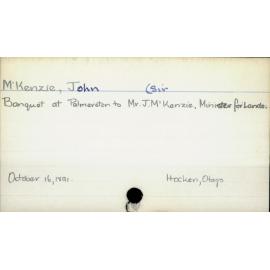 M'Kenzie, John (Sir
Banquet at Palmerston to Mr. J. M'Kenzie, Minister for Lands.
October 16, 1891. Hocken, Otago